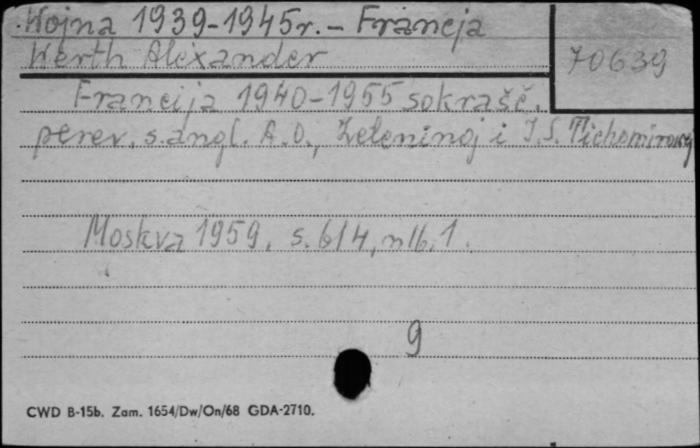 Wojna 1939-1945r. - Francja
Werth Alexander
70639
Francija 1940-1955 sokrašč.
perev. s. angl. A. O., Zeleninoj i I. S. Tichomirovoj
Moskva 1959, s. 614, nlb. 1.
9
CWD B-15b. Zam. 1654/Dw/On/68 GDA-2710.